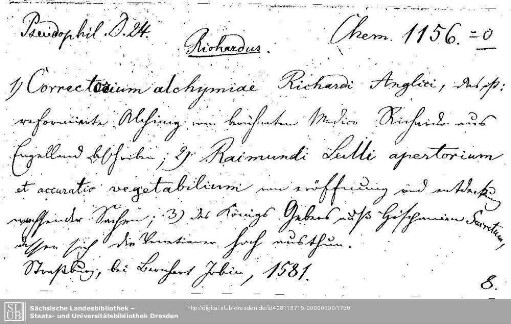 Pseudophil. D. 24. Chem. 1156.=0
Richardus.
1) Correctorium alchymiae Richardi Anglici, das ist:
reformirte Alchimy vom berühmten Medico Richardo aus
Engelland beschrieben; 2) Raimundi Lulli apertorium
et accuratio vegetabilium von eröffnung und entdeckung
wachsender Sachen; 3) des Königs Gebers auß Hispanien Secretum,
dessen sich die Venetianer hoch austhun.
Straßburg, bei Bernhart Jobin, 1581.
8.
SLUB
Sächsische Landesbibliothek –
Staats- und Universitätsbibliothek Dresden